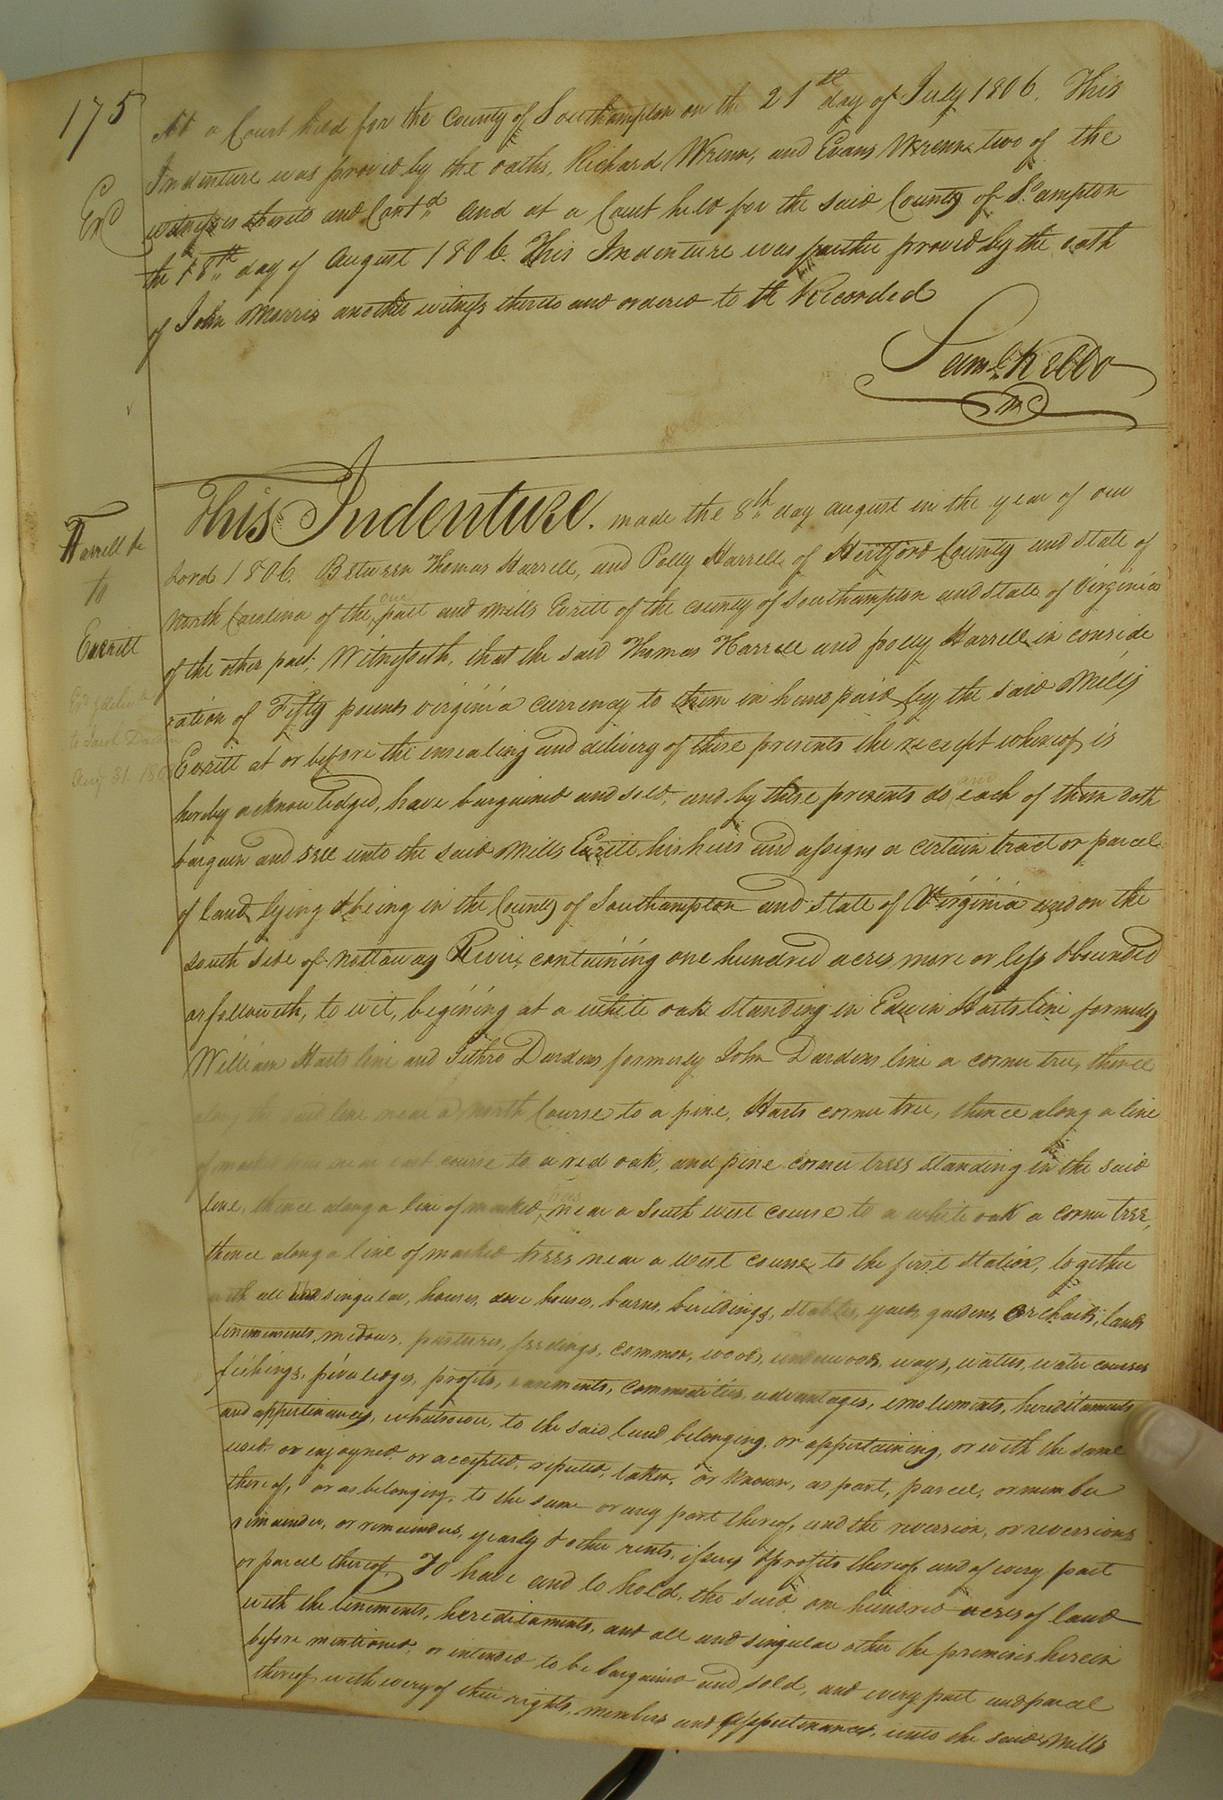 175
At a Court held for the County of Southampton on the 21th day of July 1806. This
Indenture was proved by the oaths, Richard Wrenn, and Evans Wrenn two of the
Exd
witnesses thereto and Contd. and at a Court held for the said County of S.ampton
the 18th day of August 1806. This Indenture was further proved by the oath
of John Morris another witness thereto and ordered to be Recorded
Saml. Kello
This Indenture. made the 8th day august in the year of our
Harrell &c
to
Everitt
Lord 1806. Between Thomas Harrell, and Polly Harrell of Hertford County and State of
North Carolina of the one part and Mills Everitt of the county of Southampton and State of Virginia
of the other part. Witnesseth, that the said Thomas Harrell and polly Harrell in conside
ration of Fifty pounds virginia currency to them in hand paid by the said Mills
to
Aug 31
Everitt at or before the ensealing and delivery of these presents the receipt whereof is
hereby acknowledged, have bargained and sold, and by these presents do and each of them doth
bargain and sell unto the said Mills Everitt his heirs and assigns a certain tract or parcel
of land, lying & being in the County of Southampton and State of Virginia and on the
south side of nottoway River, containing one hundred acres more or less & bounded
as followeth, to wit, begining at a white oak standing in Edwin Harts line formerly
William Harts line and Jethro Dardens formerly John Dardens line a corner tree, thence
along the said line near a north Course to a pine, Harts corner tree, thence along a line
of marked trees near an east course to a red oak, and pine corner trees standing in the said
line, thence along a line of marked trees near a South west course to a white oak a corner tree,
thence along a line of marked trees near a west course to the first station, together
with all and singular, houses, dove houses, barns, buildings, stables, yards, gardens, orchards, lands
tenements, medows, pastures, feedings, common, woods, underwoods, ways, waters, water courses
fishings, priviledges, profits, easments, commodities, advantages, emoluments, hereditaments
and appertinances, whatsoever, to the said land belonging, or appertaining, or with the same
used or enjoyned or accepted, reputed, taken, or known, as part, parcel, or member
thereof, or as belonging, to the same or any part thereof, and the reversion, or reversions
remainder, or remainders, yearly & other rents, issues & profits thereof, and of every part
or parcel thereof. To have and to hold, the said one hundred acres of land
with the tenements, hereditaments, and all and singular other the premises herein
before mentioned, or intended to be bargained and sold, and every part and parcel
thereof, with every of their rights, members and appertenances, unto the said Mills